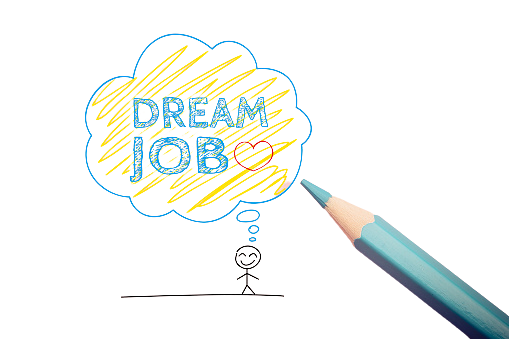 DREAM
JOB